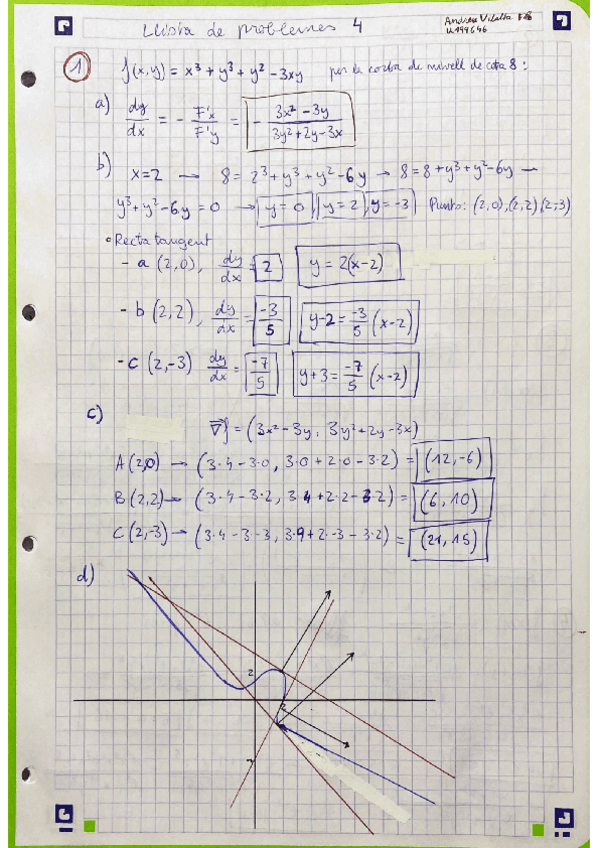 Llista de problemes 4
Andreu Vilalta
U199646
1 f(x,y) = x³ + y³ + y² - 3xy per la corba de nivell de cota 8:
a) dy/dx = - F'x/F'y = - (3x² - 3y)/(3y² + 2y - 3x)
b) x=2 → 8 = 2³ + y³ + y² - 6y → 8 = 8 + y³ + y² - 6y →
y³ + y² - 6y = 0 → y = 0, y = 2, y = -3 Punts: (2,0), (2,2), (2,-3)
• Recta tangent
- a (2,0), dy/dx = 2 y = 2(x-2)
- b (2,2), dy/dx = -3/5 y-2 = -3/5 (x-2)
- c (2,-3) dy/dx = -7/5 y+3 = -7/5 (x-2)
c) ∇f = (3x² - 3y, 3y² + 2y - 3x)
A(2,0) → (3·4 - 3·0, 3·0 + 2·0 - 3·2) = (12, -6)
B(2,2) → (3·4 - 3·2, 3·4 + 2·2 - 3·2) = (6, 10)
C(2,-3) → (3·4 - 3·-3, 3·9 + 2·-3 - 3·2) = (21, 15)
d)
2
2